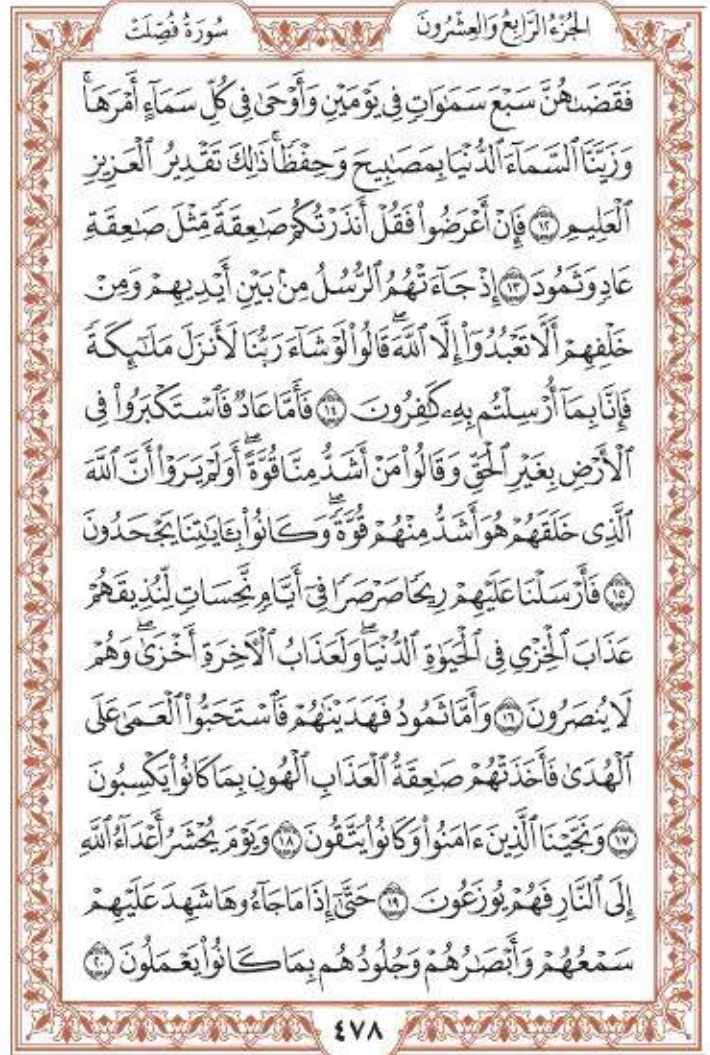 الجُزْءُ الرَّابِعُ وَالعِشْرُونَ
سُورَةُ فُصِّلَتْ
فَقَضَىٰهُنَّ سَبْعَ سَمَٰوَاتٖ فِي يَوْمَيْنِ وَأَوْحَىٰ فِي كُلِّ سَمَآءٍ أَمْرَهَاۚ
وَزَيَّنَّا ٱلسَّمَآءَ ٱلدُّنْيَا بِمَصَٰبِيحَ وَحِفْظٗاۚ ذَٰلِكَ تَقْدِيرُ ٱلْعَزِيزِ
ٱلْعَلِيمِ ١٢ فَإِنْ أَعْرَضُوا۟ فَقُلْ أَنذَرْتُكُمْ صَٰعِقَةٗ مِّثْلَ صَٰعِقَةِ
عَادٖ وَثَمُودَ ١٣ إِذْ جَآءَتْهُمُ ٱلرُّسُلُ مِنۢ بَيْنِ أَيْدِيهِمْ وَمِنْ
خَلْفِهِمْ أَلَّا تَعْبُدُوٓا۟ إِلَّا ٱللَّهَۖ قَالُوا۟ لَوْ شَآءَ رَبُّنَا لَأَنزَلَ مَلَٰٓئِكَةٗ
فَإِنَّا بِمَآ أُرْسِلْتُم بِهِۦ كَٰفِرُونَ ١٤ فَأَمَّا عَادٞ فَٱسْتَكْبَرُوا۟ فِي
ٱلْأَرْضِ بِغَيْرِ ٱلْحَقِّ وَقَالُوا۟ مَنْ أَشَدُّ مِنَّا قُوَّةًۖ أَوَلَمْ يَرَوْا۟ أَنَّ ٱللَّهَ
ٱلَّذِي خَلَقَهُمْ هُوَ أَشَدُّ مِنْهُمْ قُوَّةٗۖ وَكَانُوا۟ بِـَٔايَٰتِنَا يَجْحَدُونَ
١٥ فَأَرْسَلْنَا عَلَيْهِمْ رِيحٗا صَرْصَرٗا فِيٓ أَيَّامٖ نَّحِسَاتٖ لِّنُذِيقَهُمْ
عَذَابَ ٱلْخِزْيِ فِي ٱلْحَيَوٰةِ ٱلدُّنْيَاۖ وَلَعَذَابُ ٱلْأٓخِرَةِ أَخْزَىٰۖ وَهُمْ
لَا يُنصَرُونَ ١٦ وَأَمَّا ثَمُودُ فَهَدَيْنَٰهُمْ فَٱسْتَحَبُّوا۟ ٱلْعَمَىٰ عَلَى
ٱلْهُدَىٰ فَأَخَذَتْهُمْ صَٰعِقَةُ ٱلْعَذَابِ ٱلْهُونِ بِمَا كَانُوا۟ يَكْسِبُونَ
١٧ وَنَجَّيْنَا ٱلَّذِينَ ءَامَنُوا۟ وَكَانُوا۟ يَتَّقُونَ ١٨ وَيَوْمَ يُحْشَرُ أَعْدَآءُ ٱللَّهِ
إِلَى ٱلنَّارِ فَهُمْ يُوزَعُونَ ١٩ حَتَّىٰٓ إِذَا مَا جَآءُوهَا شَهِدَ عَلَيْهِمْ
سَمْعُهُمْ وَأَبْصَٰرُهُمْ وَجُلُودُهُم بِمَا كَانُوا۟ يَعْمَلُونَ ٢٠
٤٧٨